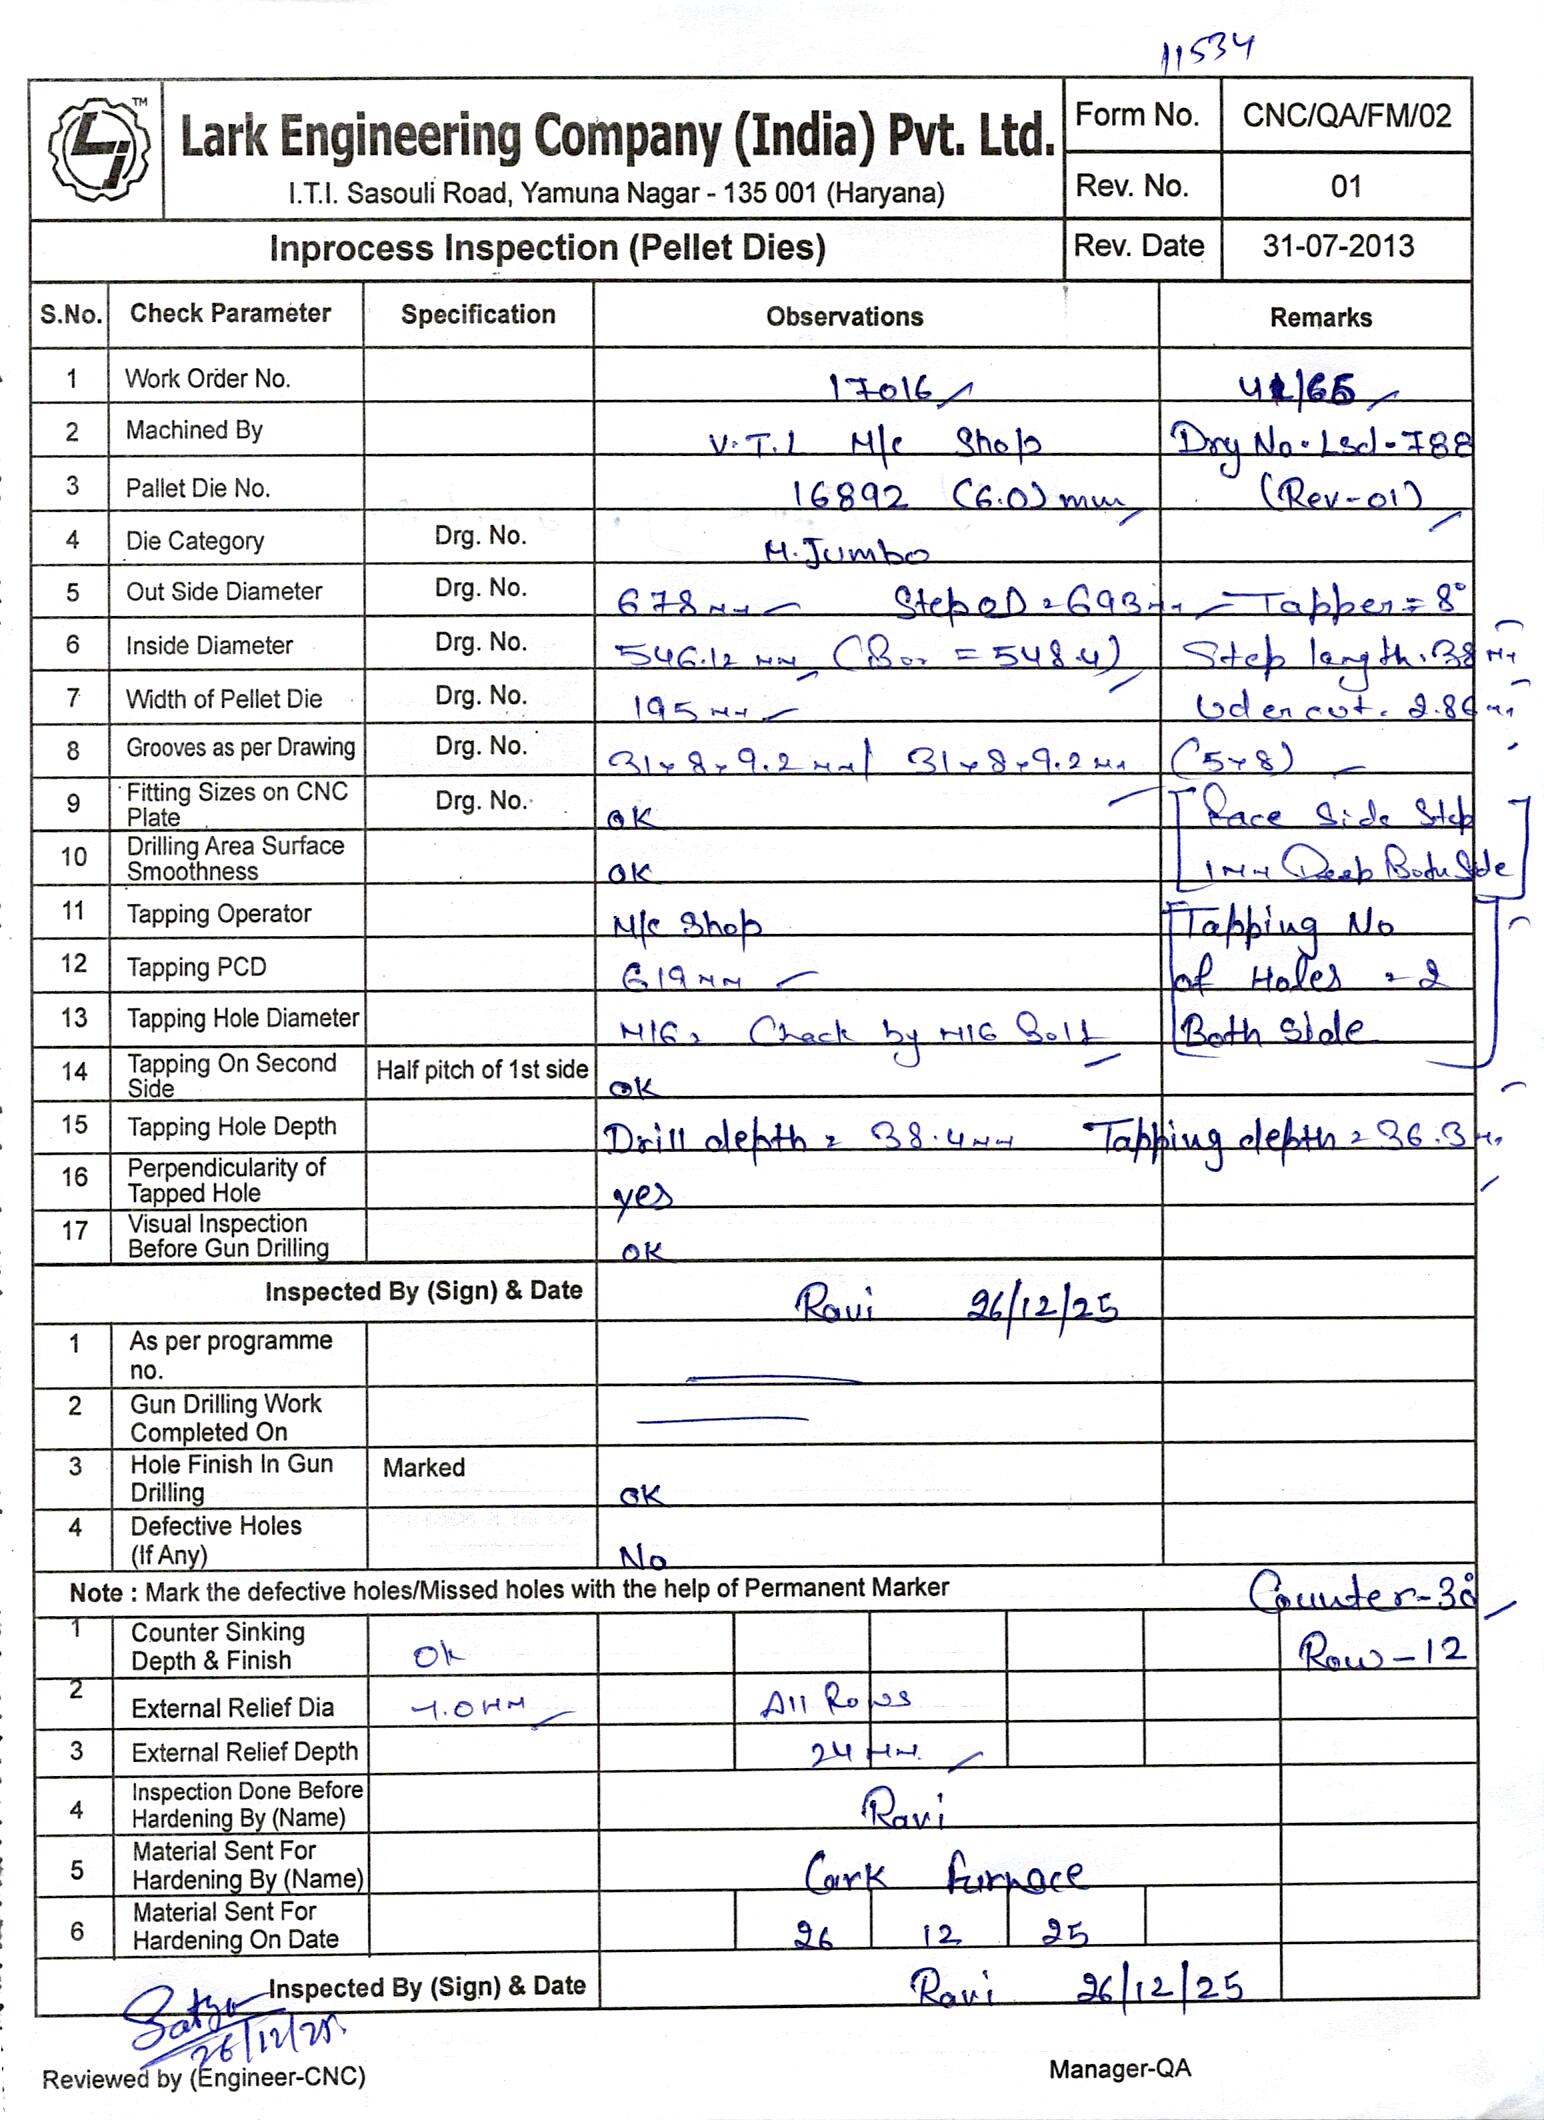 11534
TM
Lark Engineering Company (India) Pvt. Ltd.
I.T.I. Sasouli Road, Yamuna Nagar - 135 001 (Haryana)
Form No. CNC/QA/FM/02
Rev. No. 01
Inprocess Inspection (Pellet Dies) Rev. Date 31-07-2013
S.No. Check Parameter Specification Observations Remarks
1 Work Order No. 17016
2 Machined By V.T.L M/c Shop Drg No. Lsd-788
3 Pallet Die No. 16892 (6.0) mm (Rev-01)
4 Die Category Drg. No. M.Jumbo
5 Out Side Diameter Drg. No. 678 MM Step OD = 693 MM Tapper = 8°
6 Inside Diameter Drg. No. 546.12 MM (Bor = 548.4) Step length. 38 MM
7 Width of Pellet Die Drg. No. 195 MM Udercut. 2.86 MM
8 Grooves as per Drawing Drg. No. 31x8x9.2 MM / 31x8x9.2 MM (5x8)
9 Fitting Sizes on CNC Plate Drg. No. OK Face Side Step
10 Drilling Area Surface Smoothness OK 1MM Deep Both Side
11 Tapping Operator M/c Shop Tapping No
12 Tapping PCD 619 MM of Holes = 2
13 Tapping Hole Diameter M16, Check by M16 Bolt Both Side
14 Tapping On Second Side Half pitch of 1st side OK
15 Tapping Hole Depth Drill depth = 38.4 MM Tapping depth = 36.3 MM
16 Perpendicularity of Tapped Hole yes
17 Visual Inspection Before Gun Drilling OK
Inspected By (Sign) & Date Ravi 26/12/25
1 As per programme no.
2 Gun Drilling Work Completed On
3 Hole Finish In Gun Drilling Marked OK
4 Defective Holes (If Any) No
Note : Mark the defective holes/Missed holes with the help of Permanent Marker Counter-30°
1 Counter Sinking Depth & Finish Ok Row-12
2 External Relief Dia 7.0 MM All Rows
3 External Relief Depth 24 MM.
4 Inspection Done Before Hardening By (Name) Ravi
5 Material Sent For Hardening By (Name) Lark Furnace
6 Material Sent For Hardening On Date 26 12 25
Inspected By (Sign) & Date Ravi 26/12/25
Satya
26/12/25
Reviewed by (Engineer-CNC) Manager-QA